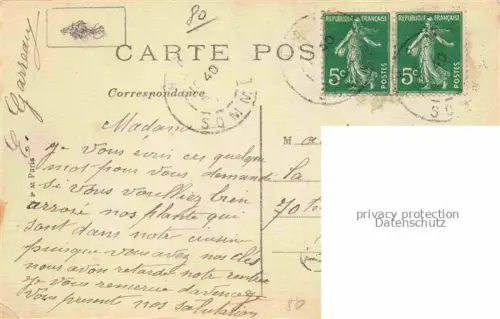 80
E. Garreau
CARTE POS
REPUBLIQUE FRANÇAISE
5c
POSTES
REPUBLIQUE FRANÇAISE
5c
POSTES
40
SOMME
Correspondance
M
Madame
je vous écris ces quelque
mos pour vous demande
si vous vouilliez bien
arosé nos plante qui
sont dans notre cuisin
puisque vous avez nos clés
nous avon retardé notre rentre
je vous remercie d'avence
Vous presente nos salutation
la
Paris
privacy protection
Datenschutz
80